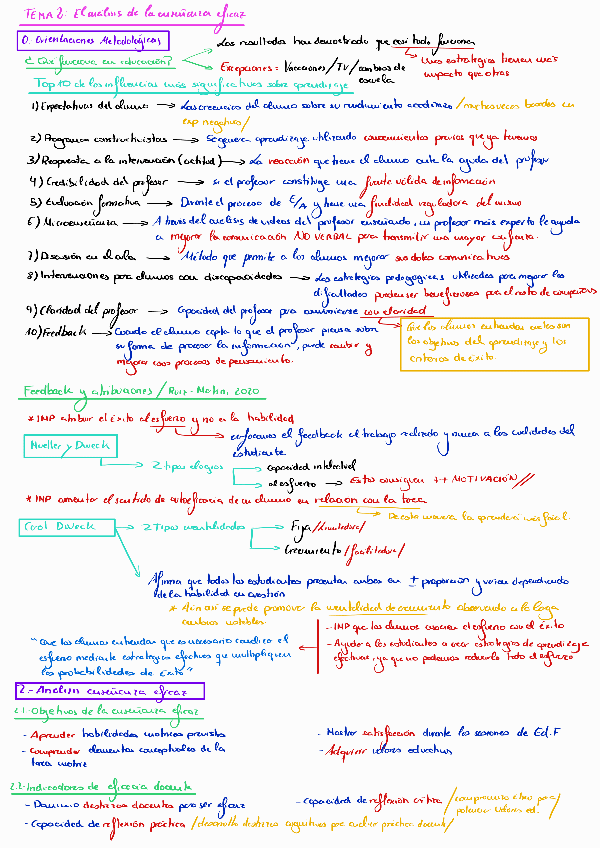 TEMA 2: El análisis de la enseñanza eficaz
0. Orientaciones Metodológicas
Los resultados han demostrado que casi todo funciona
¿Qué funciona en educación?
Unas estrategias tienen más
impacto que otras
Excepciones = Vacaciones/TV/cambios de
escuela
Top 10 de las influencias más significativas sobre aprendizaje
1) Expectativas del alumno → Las creencias del alumno sobre su rendimiento académico /muchas veces basadas en
exp negativas/
2) Programas constructivistas → Se genera aprendizaje utilizando conocimientos previos que ya tenemos
3) Respuesta a la intervención (actitud) → La reacción que tiene el alumno ante la ayuda del profesor
4) Credibilidad del profesor → si el profesor constituye una fuente válida de información
5) Evaluación formativa → Durante el proceso de E/A y tiene una finalidad reguladora del mismo
6) Microenseñanza → A través del análisis de videos del profesor enseñando, un profesor más experto le ayuda
a mejorar la comunicación NO VERBAL para transmitir una mayor confianza.
7) Discusión en el aula → Método que permite a los alumnos mejorar sus dotes comunicativas
8) Intervenciones para alumnos con discapacidades → Las estrategias pedagógicas utilizadas para mejorar las
dificultades pueden ser beneficiosas para el resto de compañeros
9) Claridad del profesor → Capacidad del profesor para comunicarse con claridad
10) Feedback → Cuando el alumno capta lo que el profesor piensa sobre
su forma de procesar la información, puede cambiar y
mejorar esos procesos de pensamiento.
Que los alumnos entiendan cuales son
los objetivos del aprendizaje y los
criterios de éxito.
Feedback y atribuciones / Ruiz-Martín, 2020
* IMP atribuir el éxito al esfuerzo y no a la habilidad
enfocarnos el feedback al trabajo realizado y nunca a las cualidades del
estudiante
Mueller y Dweck
2 tipos elogios
capacidad intelectual
al esfuerzo → Estos consiguen ++ MOTIVACIÓN//
* IMP aumentar el sentido de autoeficacia de un alumno en relación con la tarea
De esta manera la aprenderá más fácil.
Carol Dweck → 2 Tipos mentalidades
Fija /limitadora/
Crecimiento /facilitadora/
Afirma que todos los estudiantes presentan ambas en ± proporción y varían dependiendo
de la habilidad en cuestión
* Aún así se puede promover la mentalidad de crecimiento observando a la larga
cambios notables.
"Que los alumnos entiendan que es necesario canalizar el
esfuerzo mediante estrategias efectivas que multipliquen
las probabilidades de éxito"
- IMP que los alumnos asocien el esfuerzo con el éxito
- Ayudar a los estudiantes a crear estrategias de aprendizaje
efectivas, ya que no podemos reducirlo todo al esfuerzo
2.- Análisis enseñanza eficaz
2.1- Objetivos de la enseñanza eficaz
- Aprender habilidades motrices previstas
- Comprender elementos conceptuales de la
tarea motriz
- Mostrar satisfacción durante las sesiones de Ed.F
- Adquirir valores educativos
2.2- Indicadores de eficacia docente
- Dominio destrezas docentes para ser eficaz
- Capacidad de reflexión práctica /desarrollo destrezas cognitivas para evaluar práctica docente/
- Capacidad de reflexión crítica /compromiso ético para/
potenciar valores ed.